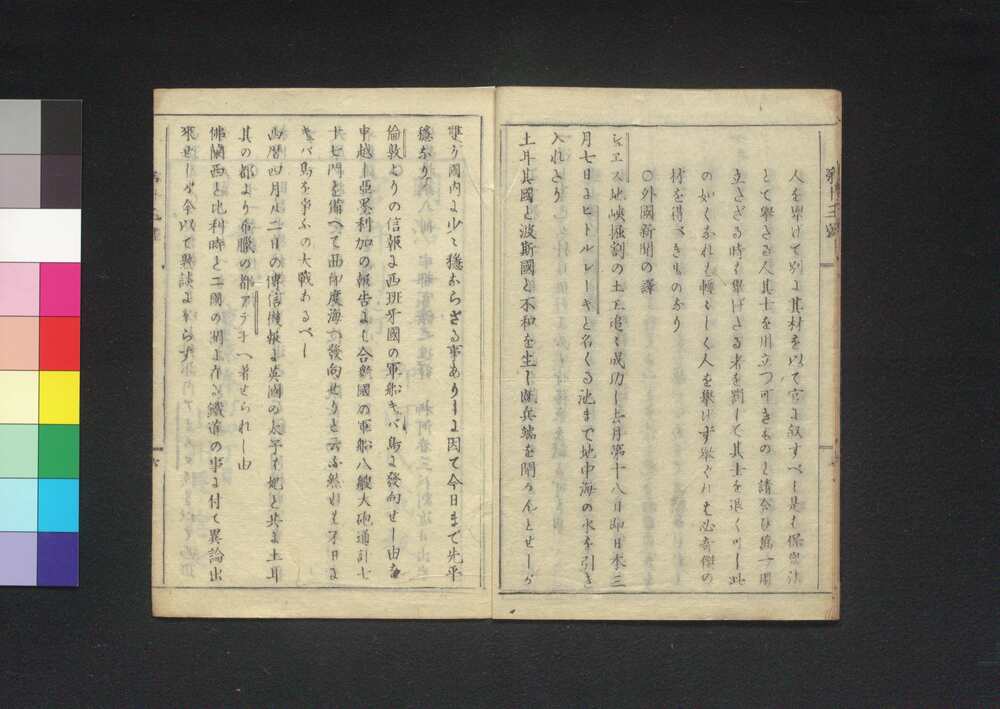 人を擧げて別よ其材を以て官よ叙すべし是も保擧法
とて擧ぐる人其士を用立つ可きものと請合ひ萬一用
立ざる時も擧げたる者を罰して其士を退くべし此
の如くなれも輕々しく人を擧げず擧ぐれも必奇傑の
材を得べきものなり
○外國新聞の譯
シエス地峽掘割の土工追々成功し去月第十八日即日本三
月七日よビトルレーキと名くる池まで地中海の水を引き
入れたり
土耳其國と波斯國と不和を生し既兵端を開かんとせしが
雙方國内よ少々穏ならざる事ありしよ因て今日まで先平
穏なり
倫敦よりの信報よ西班牙國の軍船キバ島よ發向せし由を
申越し亞墨利加の報告よも合衆國の軍船八艘大砲通計七
十七門を備へて西印度海へ發向せりと云ふ然れも不日よ
キバ島を爭ふの大戰あるべし
西暦四月八二日の傳信機報よ英國の太子も妃と共よ土耳
其の都より希臘の都アテネへ著せられし由
佛蘭西と比利時と二國の間よ存る鐵道の事よ付て異論出
來せしが今以て熟談よ至らず